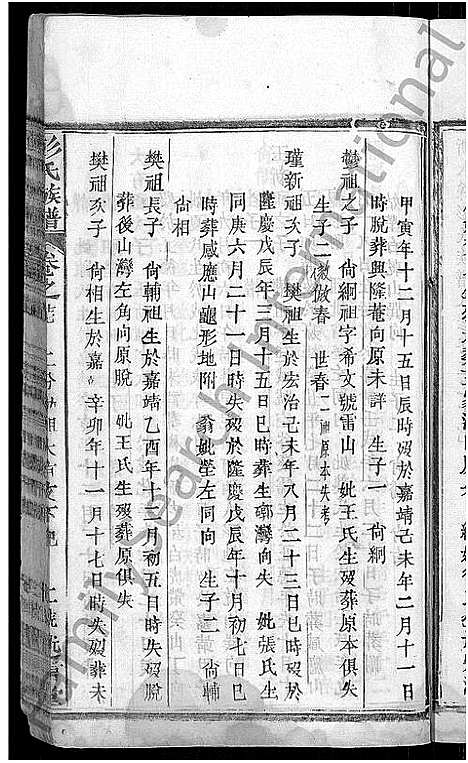 甲寅年十二月十五日辰時歿於嘉靖己未年二月十一日
時脫葬興隆菴向原未詳 生子一 尙綱
樊祖之子 尙綱祖字希文號雷山 妣王氏生歿葬原本俱失
生子二 倣春 世春 二神原本失考
瑾新祖次子 樊祖生於宏治己未年八月二十三日巳時歿於
隆慶戊辰年三月十五日巳時葬生鄣灣向失 妣張氏生
同庚六月二十一日時失歿於隆慶戊辰年十月初七日巳
時葬感應山龜形地附 翁妣塋左同向 生子二 尙輔
尙相
樊祖長子 尙輔祖生於嘉靖乙酉年十二月初五日時失歿脫
葬後山灣左角向原脫 妣王氏生歿葬原俱失
樊祖次子 尙相生於嘉 辛卯年十一月十七日時失歿葬未
彭氏族譜 卷之
FamilySearch International